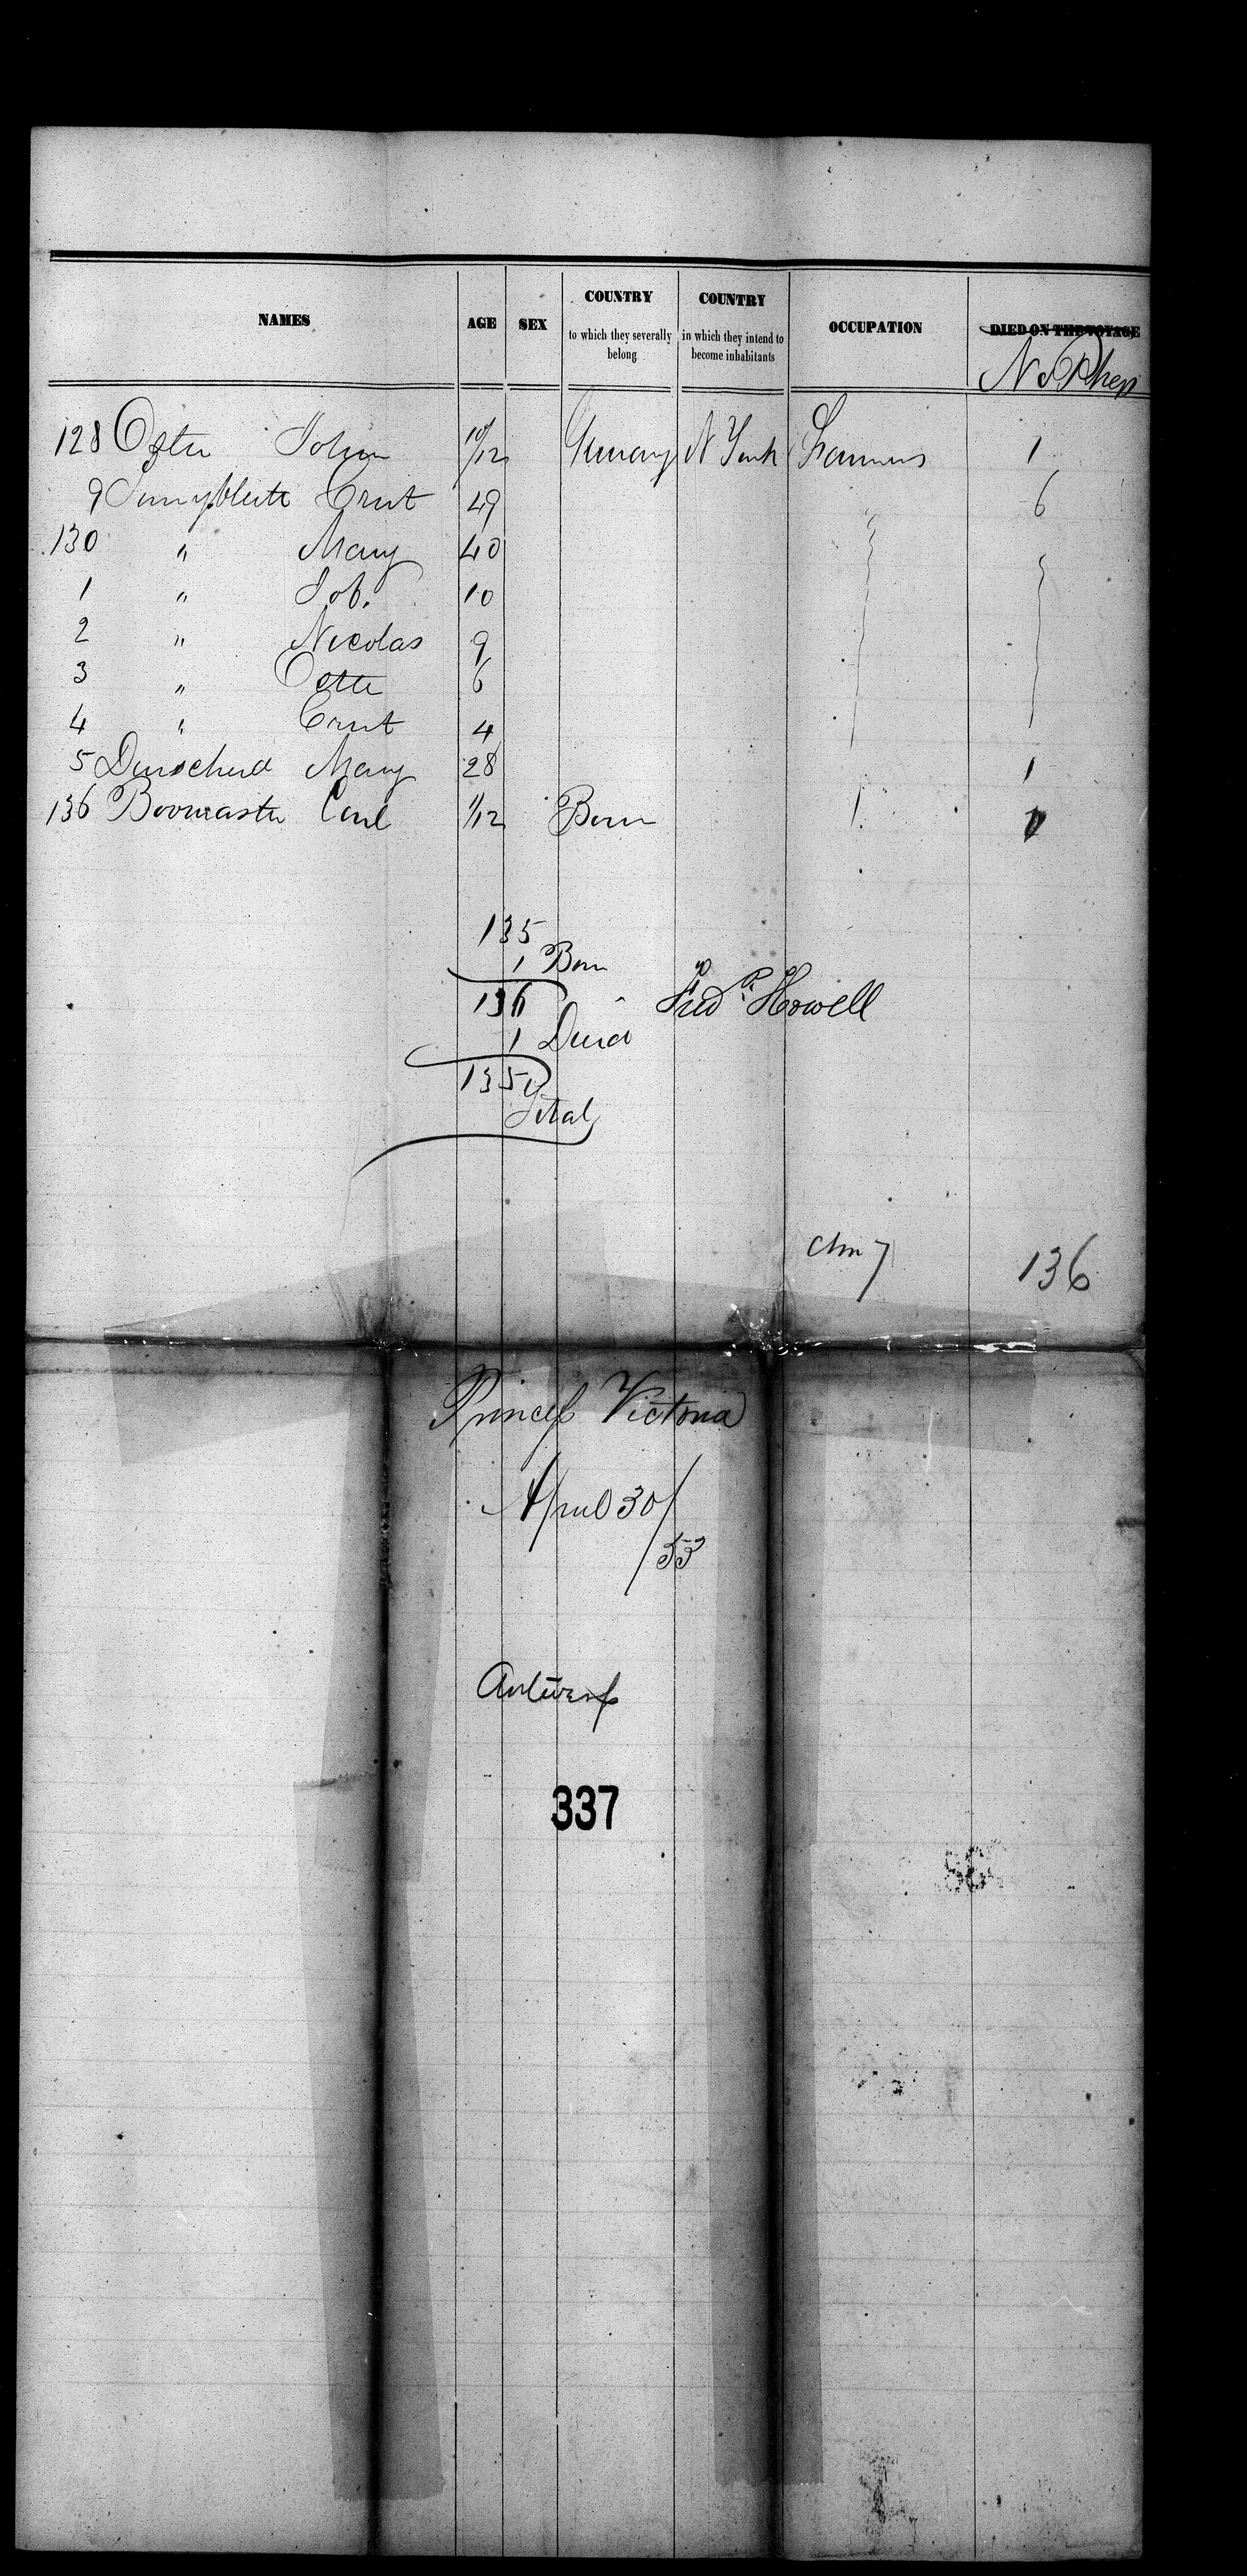 NAMES AGE SEX COUNTRY to which they severally belong COUNTRY in which they intend to become inhabitants OCCUPATION DIED ON THE VOYAGE
128 John 10/12 Germany N York Farmers 1
9 Ernst 49 6
130 " Mary 40
1 " Job. 10
2 " Nicolas 9
3 " 6
4 " Ernst 4
5 Mary 28 1
136 Carl 1/12 Born
135
1 Born
136 Fred P. Howell
1 Dead
135
Total
136
Princess Victoria
April 30/
/53
Antwerp
337